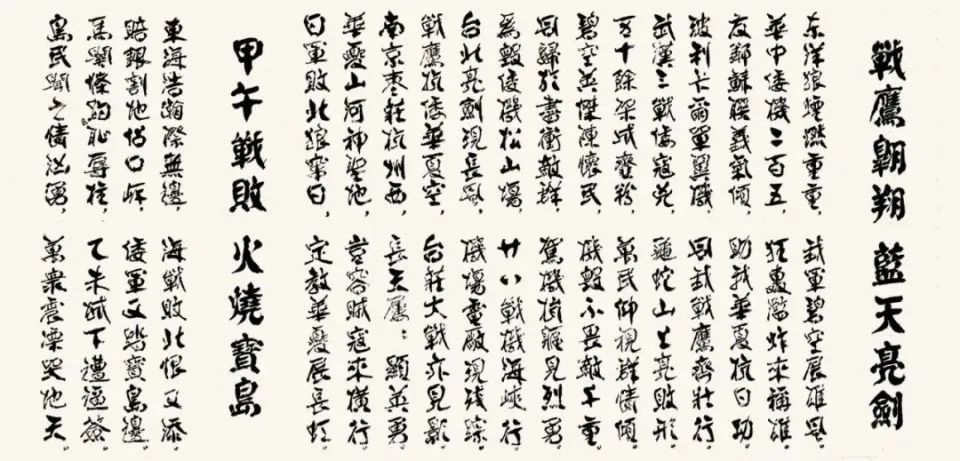 戰鷹翱翔 藍天亮劍
东洋狼煙燃重重， 我軍碧空展雄風。
華中倭機二百五， 狂轟濫炸來稱雄。
友鄰蘇联義氣傾， 助我華夏抗日功。
波利卡爾軍翼機， 同我戰鷹齊壯行。
武漢三戰倭寇 龜蛇山上亮敗形。
五十餘架成齏粉， 萬民仰視群情傾。
碧空英傑陳懷民， 機毀不畏敵千重。
同歸於盡衝敵群， 駕機撞 見烈勇。
為毀倭機松山場， 廿八戰機海峽行。
台北亮劍現長風， 機場電廠現殘踪。
戰鷹抗倭華夏空， 台莊大戰亦見影。
南京枣莊杭州西， 長天鷹：顯英勇。
華夏山河神聖地， 豈容賊寇來橫行。
日軍敗北狼竄日， 定教華夏展長虹。
甲午戰敗 火燒寶島
東海浩瀚際無邊， 海戰敗北恨又添。
賠銀割地 口岸， 倭軍又踏寶島邊。
馬關條約恥辱柱， 乙未 下遭逼簽。
島民聞之情汹湧， 萬衆震慄哭地天。